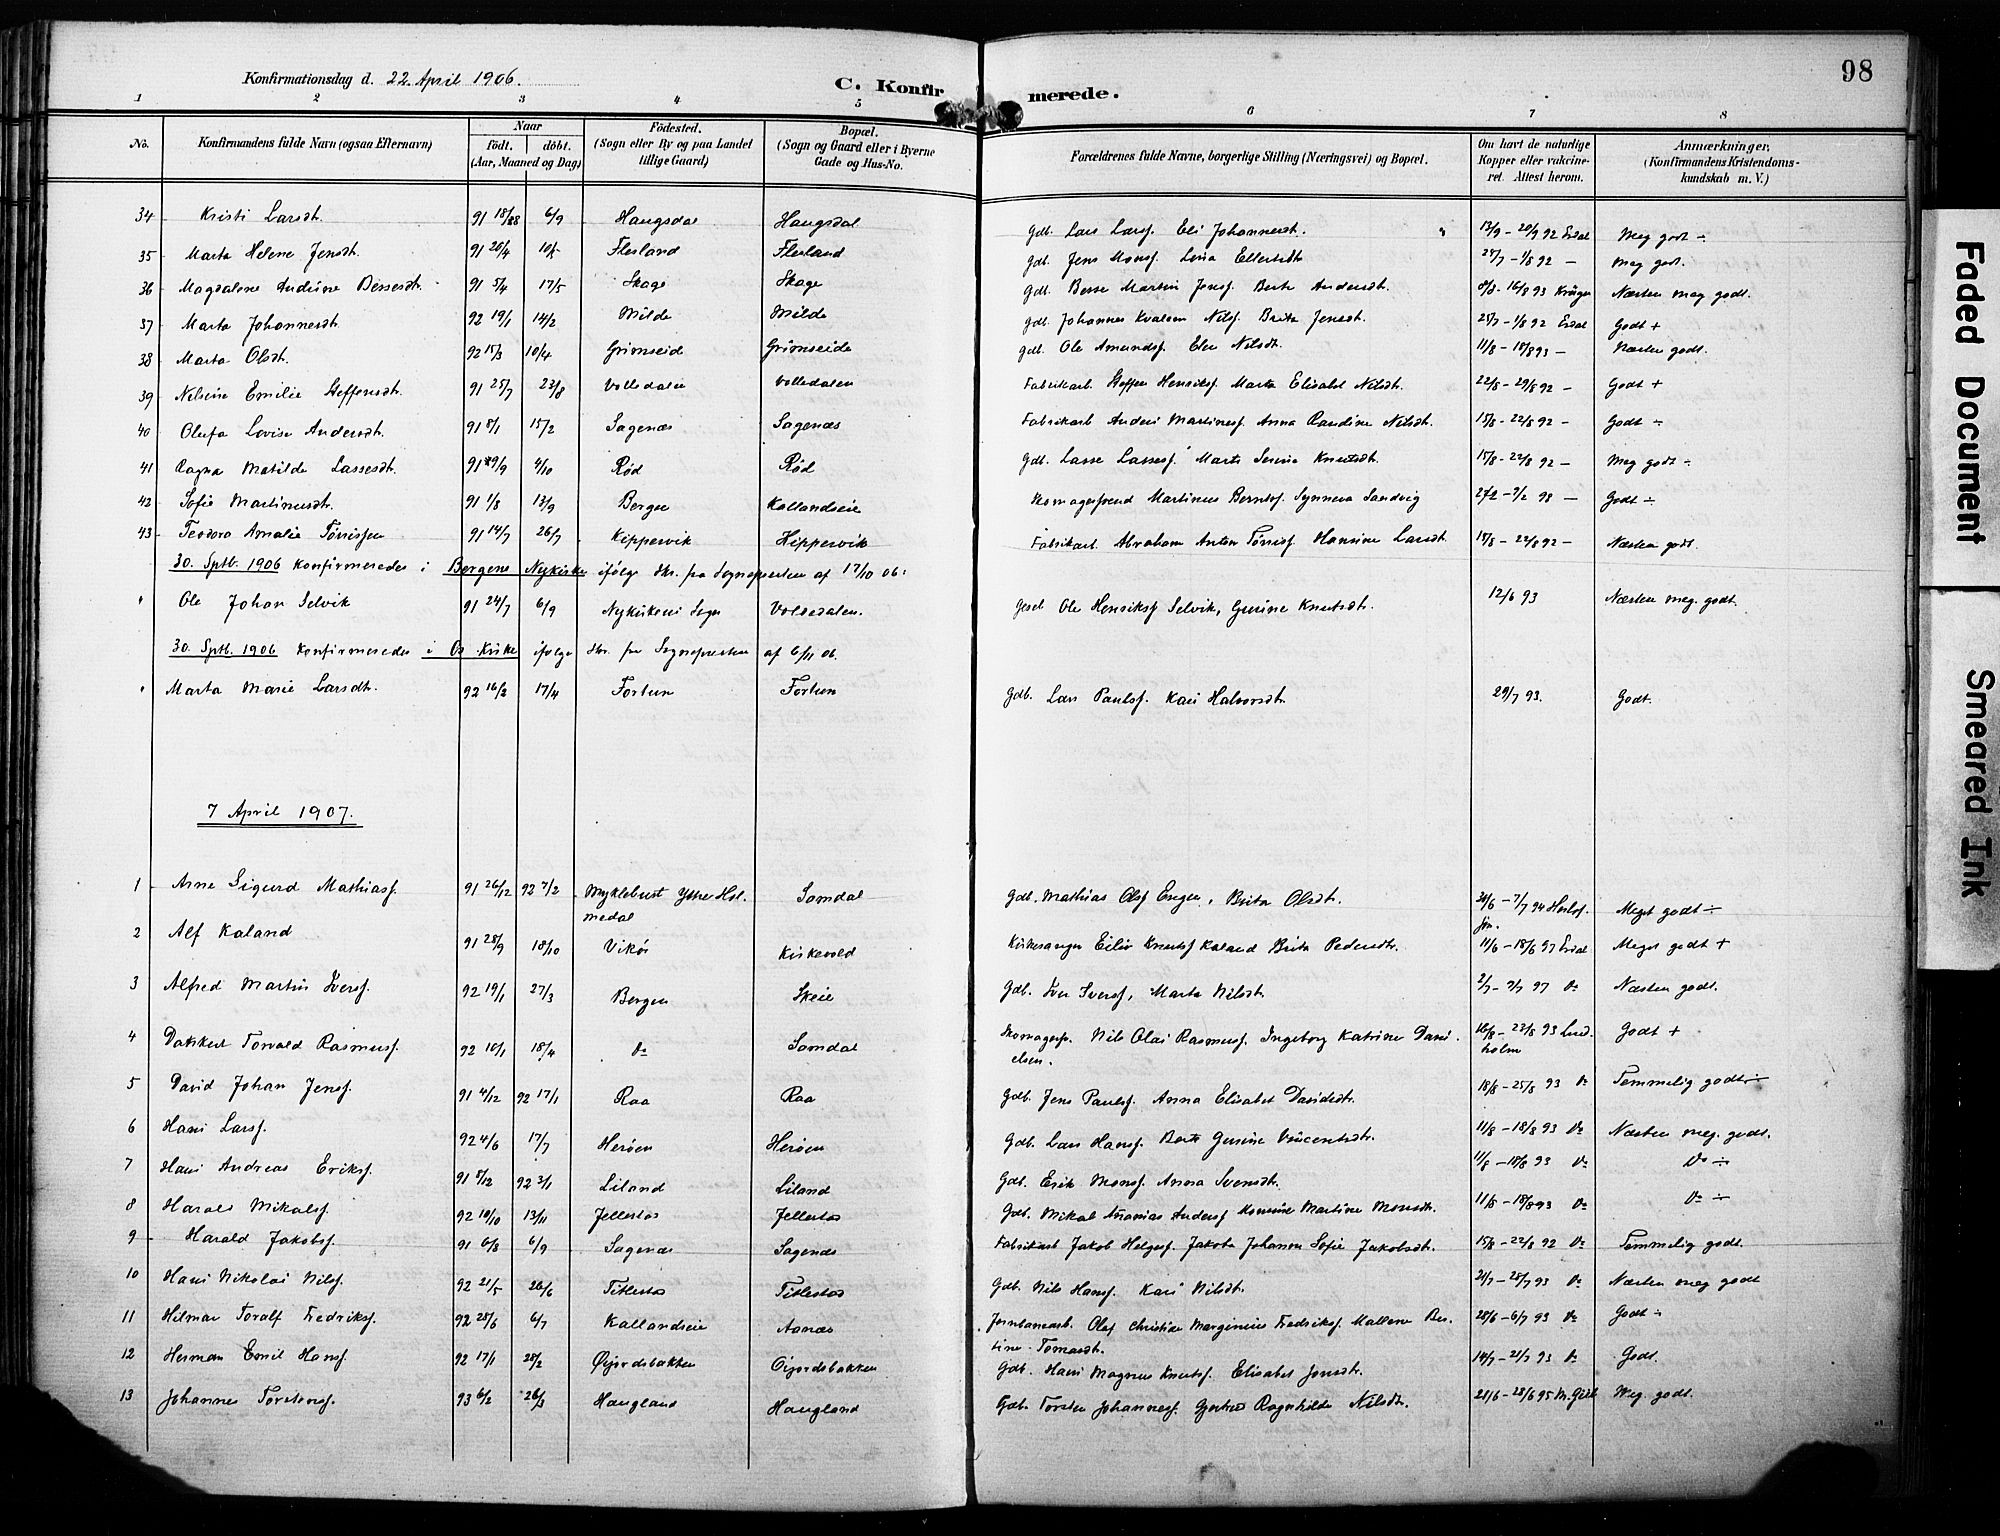 98
Konfirmationsdag d. 22. April 1906.
C. Konfirmerede.
1 2 3 4 5 6 7 8
No. Konfirmandens fulde Navn (ogsaa Efternavn) Naar født. døbt. (Aar, Maaned og Dag) Fødested. (Sogn eller By og paa Landet tillige Gaard) Bopæl. (Sogn og Gaard eller i Byerne Gade og Hus-No. Forældrenes fulde Navne, borgerlige Stilling (Næringsvei) og Bopæl. Om havt de naturlige Kopper eller vakcineret. Attest herom. Anmærkninger, (Konfirmandens Kristendomskundskab m. V.)
34 Kristi Larsdt. 91 6/9 Haugsdal Haugsdal Gdb. Lars Larsf. Eli Johannesdt. 92 Meg godt ÷
35 Marta Helene Jensdt. 91 20/4 Flesland Flesland Gdb. Jens Monsf. Lina 27/7 – 1/8 92 – Meg godt.
36 Magdalene Andrine Bessesdt. 91 5/4 17/5 Skage Skage Gdb. Besse Martin Jensf. Berte Andersdt. 16/8 93 Krüger Næsten meg godt.
37 Marta Johannesdt. 92 19/1 14/2 Milde Milde Gdb. Johannes Nilsf. Brita Jensdt. 1/8 92 Godt +
38 Marta Olsdt. 92 15/3 10/4 Grimseid Grimseide Gdb. Ole Amundsf. Nilsdt. 11/8 – 18/8 93 – Næsten godt.
39 Nelsine Emilie Steffensdt. 91 25/7 23/8 Volledalen Volledalen Fabrikarb. Steffen Henriksf. Marta Elisabet Nilsdt. 22/8 – 29/8 92 – Godt +
40 Olufa Lovise Andersdt. 91 8/1 15/2 Sagenæs Sagenæs Fabrikarb Anders Martinesf. Anna Randine Nilsdt. 15/8 – 22/8 92 – Godt ÷
41 Ragna Matilde Lassesdt. 91 4/10 Rød Rød Gdb. Lasse Lassesf. Marta Serine Knutsdt. 15/8 – 22/8 92 – Meg godt ÷
42 Sofie Martinusdt. 91 1/8 13/9 Bergen Kallandseie Skomagersvend Martinus Berntsf. Synneva Sandvig 98 – Godt ÷
43 Teodora Amalie Tørrissen 91 14/7 26/7 Kippersvik Hippersvik Fabrikarb. Abraham Anton Tørrisf. Hansine Larsdt. 15/8 – 22/8 92 – Næsten godt.
30. Sptb. 1906 Konfirmeredes i Bergens Nykirke ifølge Skr. fra Sognepresten af 17/10 06:
Ole Johan Selvik 91 24/7 6/9 Nykirkens Sogn Voldedalen. Ole Henriksf Selvik, Gurine Knutsdt. 12/6 93 Næsten meg. godt.
30. Sptb. 1906 Konfirmeredes i Os Kirke ifølge Skr. fra Sognepresten af 6/11 06.
Marta Marie Larsdt. 92 16/2 17/4 Fortun Fortun Gdb. Lars Paulsf. Kari Halvorsdt. 29/7 93. Godt.
7 April 1907.
1 Arne Sigurd Mathiasf. 91 26/12 92 7/2 Myklebust Ytre Holmedal Somdal Gdb. Mathias Olsf Engen, Brita Olsdt. – 7/7 94 Meget godt ÷
2 Alf Kaland 91 28/9 18/10 Vikør Kirkevold Kirkesanger Eiliv Knutsf Kaland Brita Pedersdt. 11/6 – 18/6 97 Meget godt +
3 Alfred Martin Iversf. 92 19/1 27/3 Bergen Skeie Gdb. Iver Iversf, Marta Nilsdt. 97 Do Næsten godt.
4 Torvald Rasmusf. 92 10/1 18/4 Do Somdal Skomagersv. Nils Olai Rasmusf. Ingeborg Katrine Davidsen. 16/8 – 23/8 93 Lindholm Godt +
5 David Johan Jensf. 91 4/12 92 17/1 Raa Raa Gdb. Jens Paulsf. Anna Elisabet Davidsdt. 18/8 – 25/8 93 Do Temmelig godt ÷
6 Hans Larsf. 92 4/6 17/7 Herøen Herøen Gdb. Lars Hansf. Berte Gurine Vincentsdt. 11/8 – 18/8 93 Do Næsten meg. godt.
7 Hans Andreas Eriksf. 91 8/12 92 3/1 Liland Liland Gdb. Erik Monsf. Anna Svensdt. 11/8 – 18/8 93 Do Do ÷
8 Harald Mikalsf. 92 10/10 13/11 Jellestad Jellestad Gdb. Mikal Ananias Andersf Martine Monsdt. 11/8 – 18/8 93 Do Do ÷
9 Harald Jakobsf. 91 6/8 6/9 Sagenæs Sagenæs Fabrikarb Jakob Helgesf. Johanna Sofie Jakobsdt. 15/8 – 22/8 92 Do Temmelig godt.
10 Hans Nikolai Nilsf. 92 21/5 26/6 Titlestad Titlestad Gdb. Nils Hansf. Kari Nilsdt. 21/7 – 28/7 93 Do Næsten meg godt
11 Hilmar Toralf Fredriksf. 92 28/6 6/7 Kallandseie Aanæs Jernbanearb. Olaf Christian Marginius Fredriksf. Mallene Bertine Tomasdt. 28/6 – 6/7 93 Do Godt ÷
12 Herman Emil Hansf. 92 17/1 28/2 Øijordsbakken Øijordsbakken Gdb. Hans Magnus Knutsf. Elisabet Jonsdt. 14/7 – 21/7 93 Do Godt.
13 Johannes Torstensf. 93 6/2 26/3 Haugland Haugland Gdb. Torsten Johannesf. Gjertrud Ragnhilda Nilsdt. 21/6 – 28/6 95 Meg. godt.
Faded Document
Smeared Ink